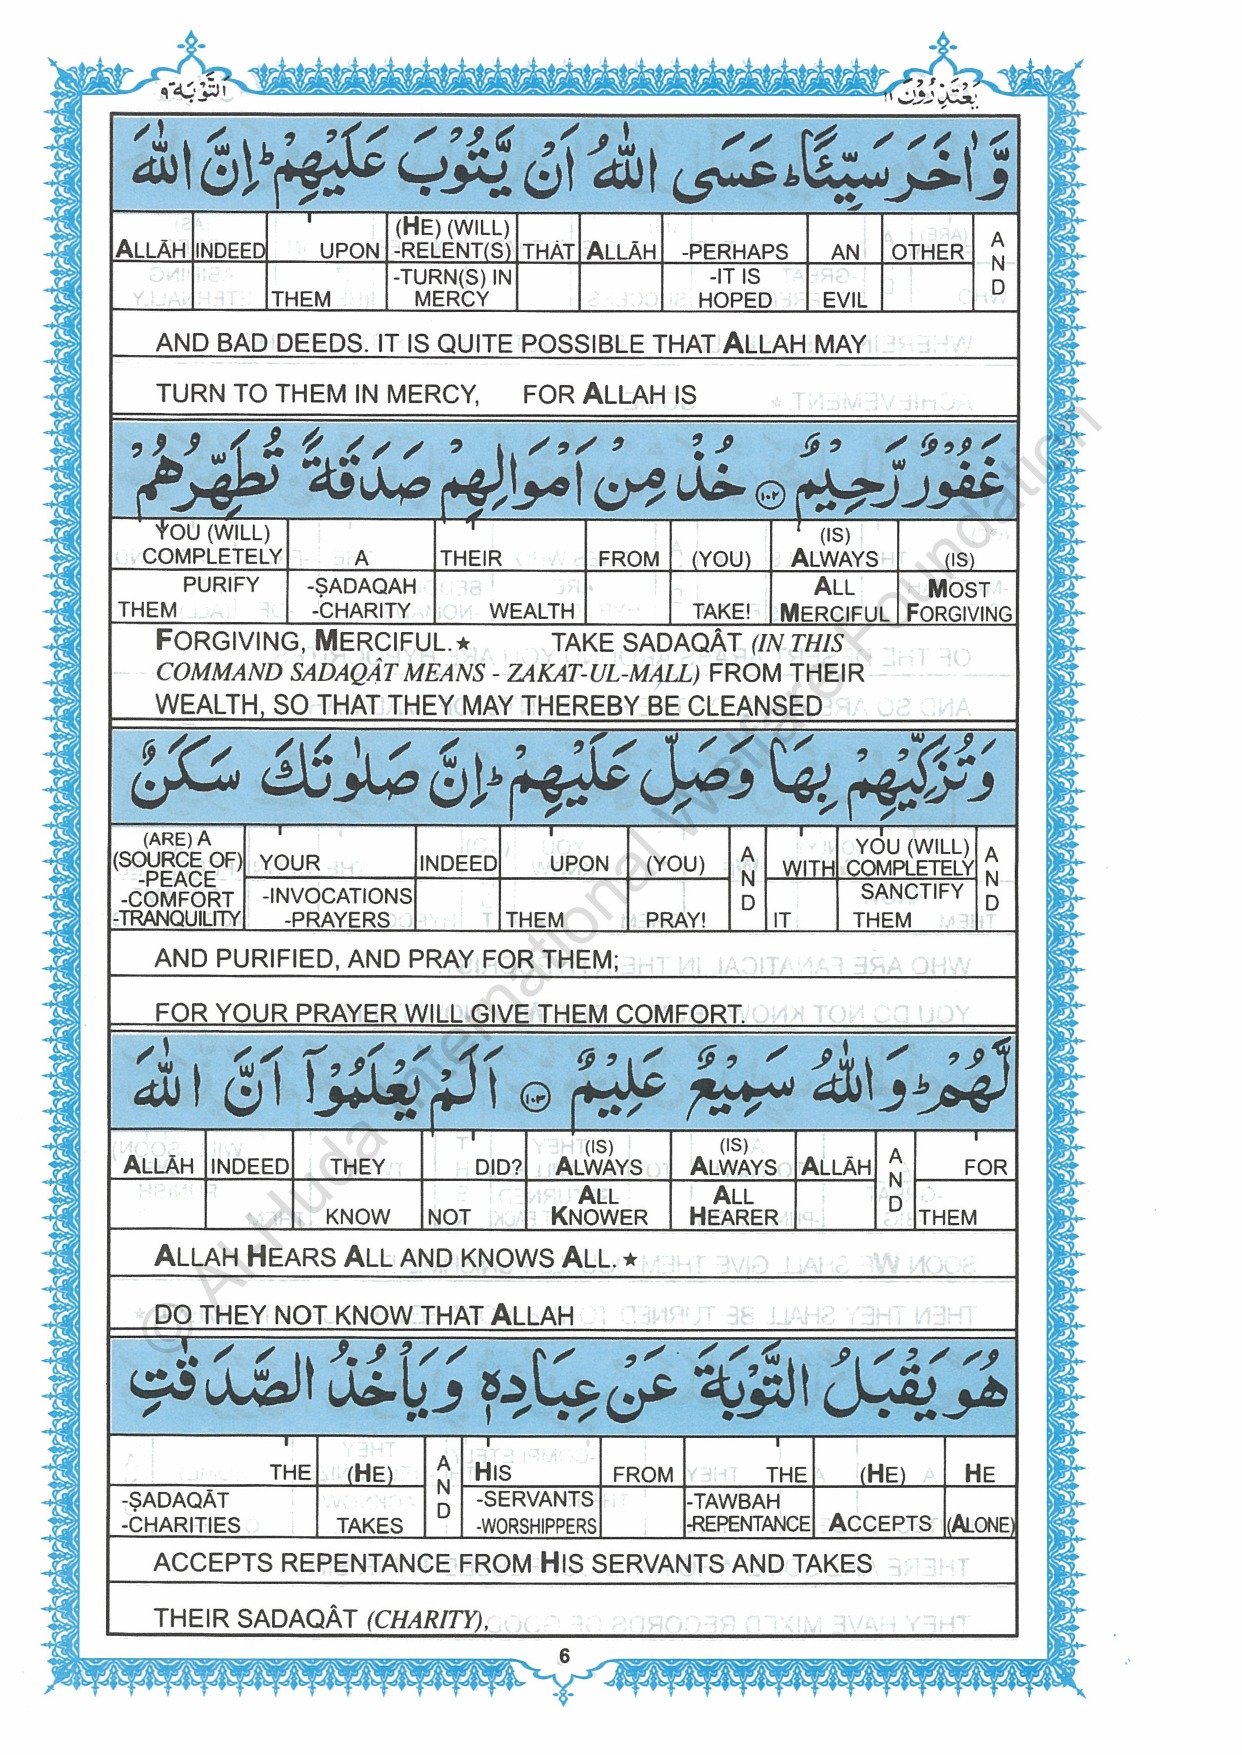 التَّوْبَة ٩
يَعْتَذِرُوْنَ ١١
وَّاٰخَرَ سَيِّئًا ؕ عَسَى اللّٰهُ اَنْ يَّتُوْبَ عَلَيْهِمْ ؕ اِنَّ اللّٰهَ
ALLĀH INDEED UPON THEM (HE) (WILL) -RELENT(S) -TURN(S) IN MERCY THAT ALLĀH -PERHAPS -IT IS HOPED AN EVIL OTHER AND
AND BAD DEEDS. IT IS QUITE POSSIBLE THAT ALLAH MAY
TURN TO THEM IN MERCY, FOR ALLAH IS
غَفُوْرٌ رَّحِيْمٌ ۝١٠٢ خُذْ مِنْ اَمْوَالِهِمْ صَدَقَةً تُطَهِّرُهُمْ
YOU (WILL) COMPLETELY PURIFY THEM A -ṢADAQAH -CHARITY THEIR WEALTH FROM (YOU) TAKE! (IS) ALWAYS ALL MERCIFUL (IS) MOST FORGIVING
FORGIVING, MERCIFUL.★ TAKE SADAQÂT (IN THIS
COMMAND SADAQÂT MEANS - ZAKAT-UL-MALL) FROM THEIR
WEALTH, SO THAT THEY MAY THEREBY BE CLEANSED
وَتُزَكِّيْهِمْ بِهَا وَصَلِّ عَلَيْهِمْ ؕ اِنَّ صَلٰوتَكَ سَكَنٌ
(ARE) A (SOURCE OF) -PEACE -COMFORT -TRANQUILITY YOUR -INVOCATIONS -PRAYERS INDEED UPON THEM (YOU) PRAY! AND WITH IT YOU (WILL) COMPLETELY SANCTIFY THEM AND
AND PURIFIED, AND PRAY FOR THEM;
FOR YOUR PRAYER WILL GIVE THEM COMFORT.
لَّهُمْ ؕ وَاللّٰهُ سَمِيْعٌ عَلِيْمٌ ۝١٠٣ اَلَمْ يَعْلَمُوْۤا اَنَّ اللّٰهَ
ALLĀH INDEED THEY KNOW DID? NOT (IS) ALWAYS ALL KNOWER (IS) ALWAYS ALL HEARER ALLĀH AND FOR THEM
ALLAH HEARS ALL AND KNOWS ALL.★
DO THEY NOT KNOW THAT ALLAH
هُوَ يَقْبَلُ التَّوْبَةَ عَنْ عِبَادِهٖ وَيَاْخُذُ الصَّدَقٰتِ
THE -ṢADAQĀT -CHARITIES (HE) TAKES AND HIS -SERVANTS -WORSHIPPERS FROM THE -TAWBAH -REPENTANCE (HE) ACCEPTS HE (ALONE)
ACCEPTS REPENTANCE FROM HIS SERVANTS AND TAKES
THEIR SADAQÂT (CHARITY),
6
© Al-Huda International Welfare Foundation